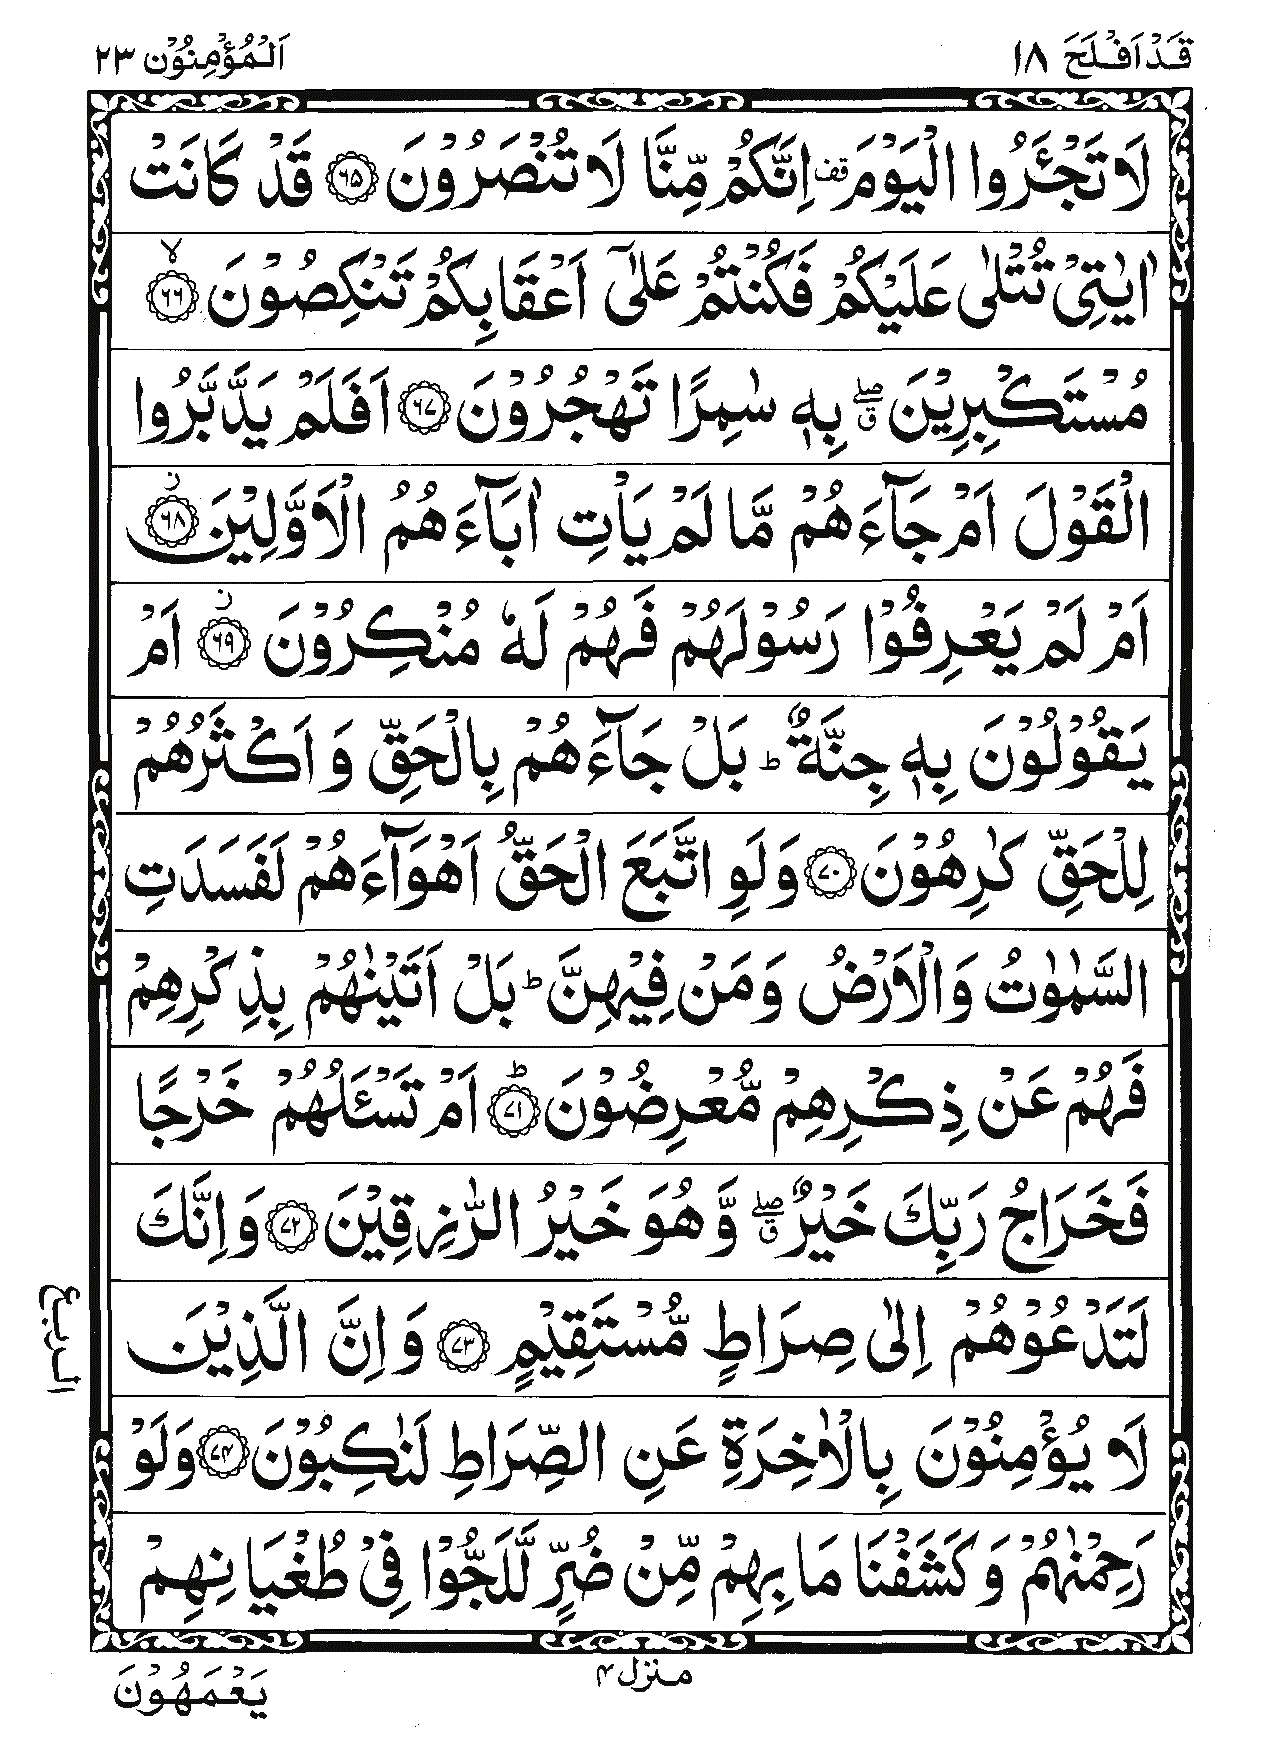 قَدْ اَفْلَحَ ١٨
اَلْمُؤْمِنُوْن ٢٣
لَا تَجْـَٔرُوا الْيَوْمَ ۗقف اِنَّكُمْ مِّنَّا لَا تُنْصَرُوْنَ ﴿۶۵﴾ قَدْ كَانَتْ
اٰيٰتِيْ تُتْلٰى عَلَيْكُمْ فَكُنْتُمْ عَلٰٓى اَعْقَابِكُمْ تَنْكِصُوْنَ ﴿۶۶﴾ۙ
مُسْتَكْبِرِيْنَ ۖۗ بِهٖ سٰمِرًا تَهْجُرُوْنَ ﴿۶۷﴾ اَفَلَمْ يَدَّبَّرُوا
الْقَوْلَ اَمْ جَآءَهُمْ مَّا لَمْ يَاْتِ اٰبَآءَهُمُ الْاَوَّلِيْنَ ﴿۶۸﴾ز
اَمْ لَمْ يَعْرِفُوْا رَسُوْلَهُمْ فَهُمْ لَهٗ مُنْكِرُوْنَ ﴿۶۹﴾ز اَمْ
يَقُوْلُوْنَ بِهٖ جِنَّةٌ ؕ بَلْ جَآءَهُمْ بِالْحَقِّ وَ اَكْثَرُهُمْ
لِلْحَقِّ كٰرِهُوْنَ ﴿۷۰﴾ وَلَوِ اتَّبَعَ الْحَقُّ اَهْوَآءَهُمْ لَفَسَدَتِ
السَّمٰوٰتُ وَالْاَرْضُ وَمَنْ فِيْهِنَّ ؕ بَلْ اَتَيْنٰهُمْ بِذِكْرِهِمْ
فَهُمْ عَنْ ذِكْرِهِمْ مُّعْرِضُوْنَ ﴿۷۱﴾ؕ اَمْ تَسْـَٔلُهُمْ خَرْجًا
فَخَرَاجُ رَبِّكَ خَيْرٌ ۖۗ وَّهُوَ خَيْرُ الرّٰزِقِيْنَ ﴿۷۲﴾ وَاِنَّكَ
لَتَدْعُوْهُمْ اِلٰى صِرَاطٍ مُّسْتَقِيْمٍ ﴿۷۳﴾ وَاِنَّ الَّذِيْنَ
لَا يُؤْمِنُوْنَ بِالْاٰخِرَةِ عَنِ الصِّرَاطِ لَنٰكِبُوْنَ ﴿۷۴﴾ وَلَوْ
رَحِمْنٰهُمْ وَكَشَفْنَا مَا بِهِمْ مِّنْ ضُرٍّ لَّلَجُّوْا فِيْ طُغْيَانِهِمْ
الربع
منزل ۴
يَعْمَهُوْنَ